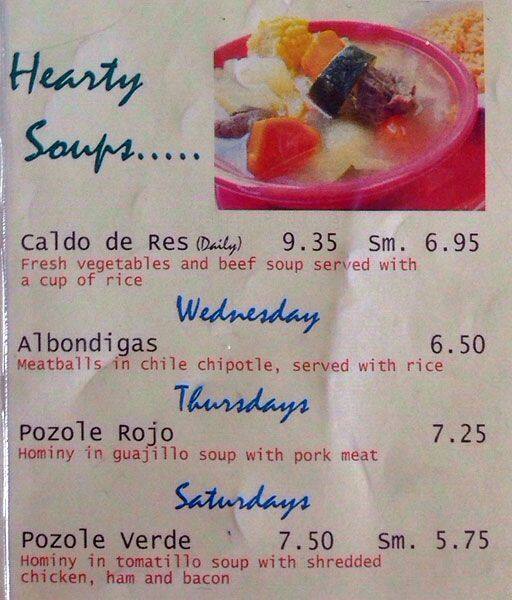 Hearty
Soups.....
Caldo de Res (Daily) 9.35 Sm. 6.95
Fresh vegetables and beef soup served with
a cup of rice
Wednesday
Albondigas 6.50
Meatballs in chile chipotle, served with rice
Thursdays
Pozole Rojo 7.25
Hominy in guajillo soup with pork meat
Saturdays
Pozole Verde 7.50 Sm. 5.75
Hominy in tomatillo soup with shredded
chicken, ham and bacon